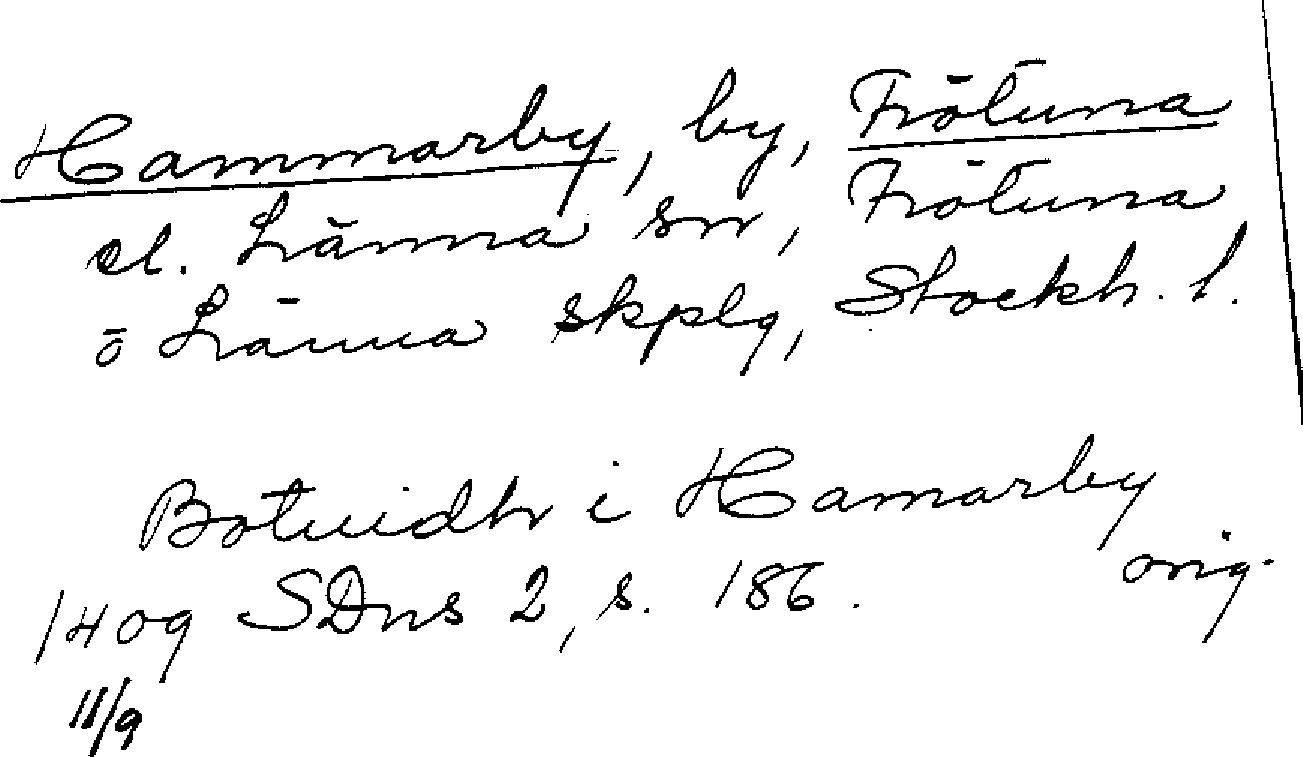 Hammarby, by, Frötuna
el. Länna sn, Frötuna
o Länna skplg, Stockh. l.
Botuidhr i Hamarby
orig.
1409 SDns 2, s. 186.
11/9